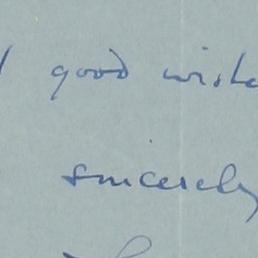 good wishe
sincerely